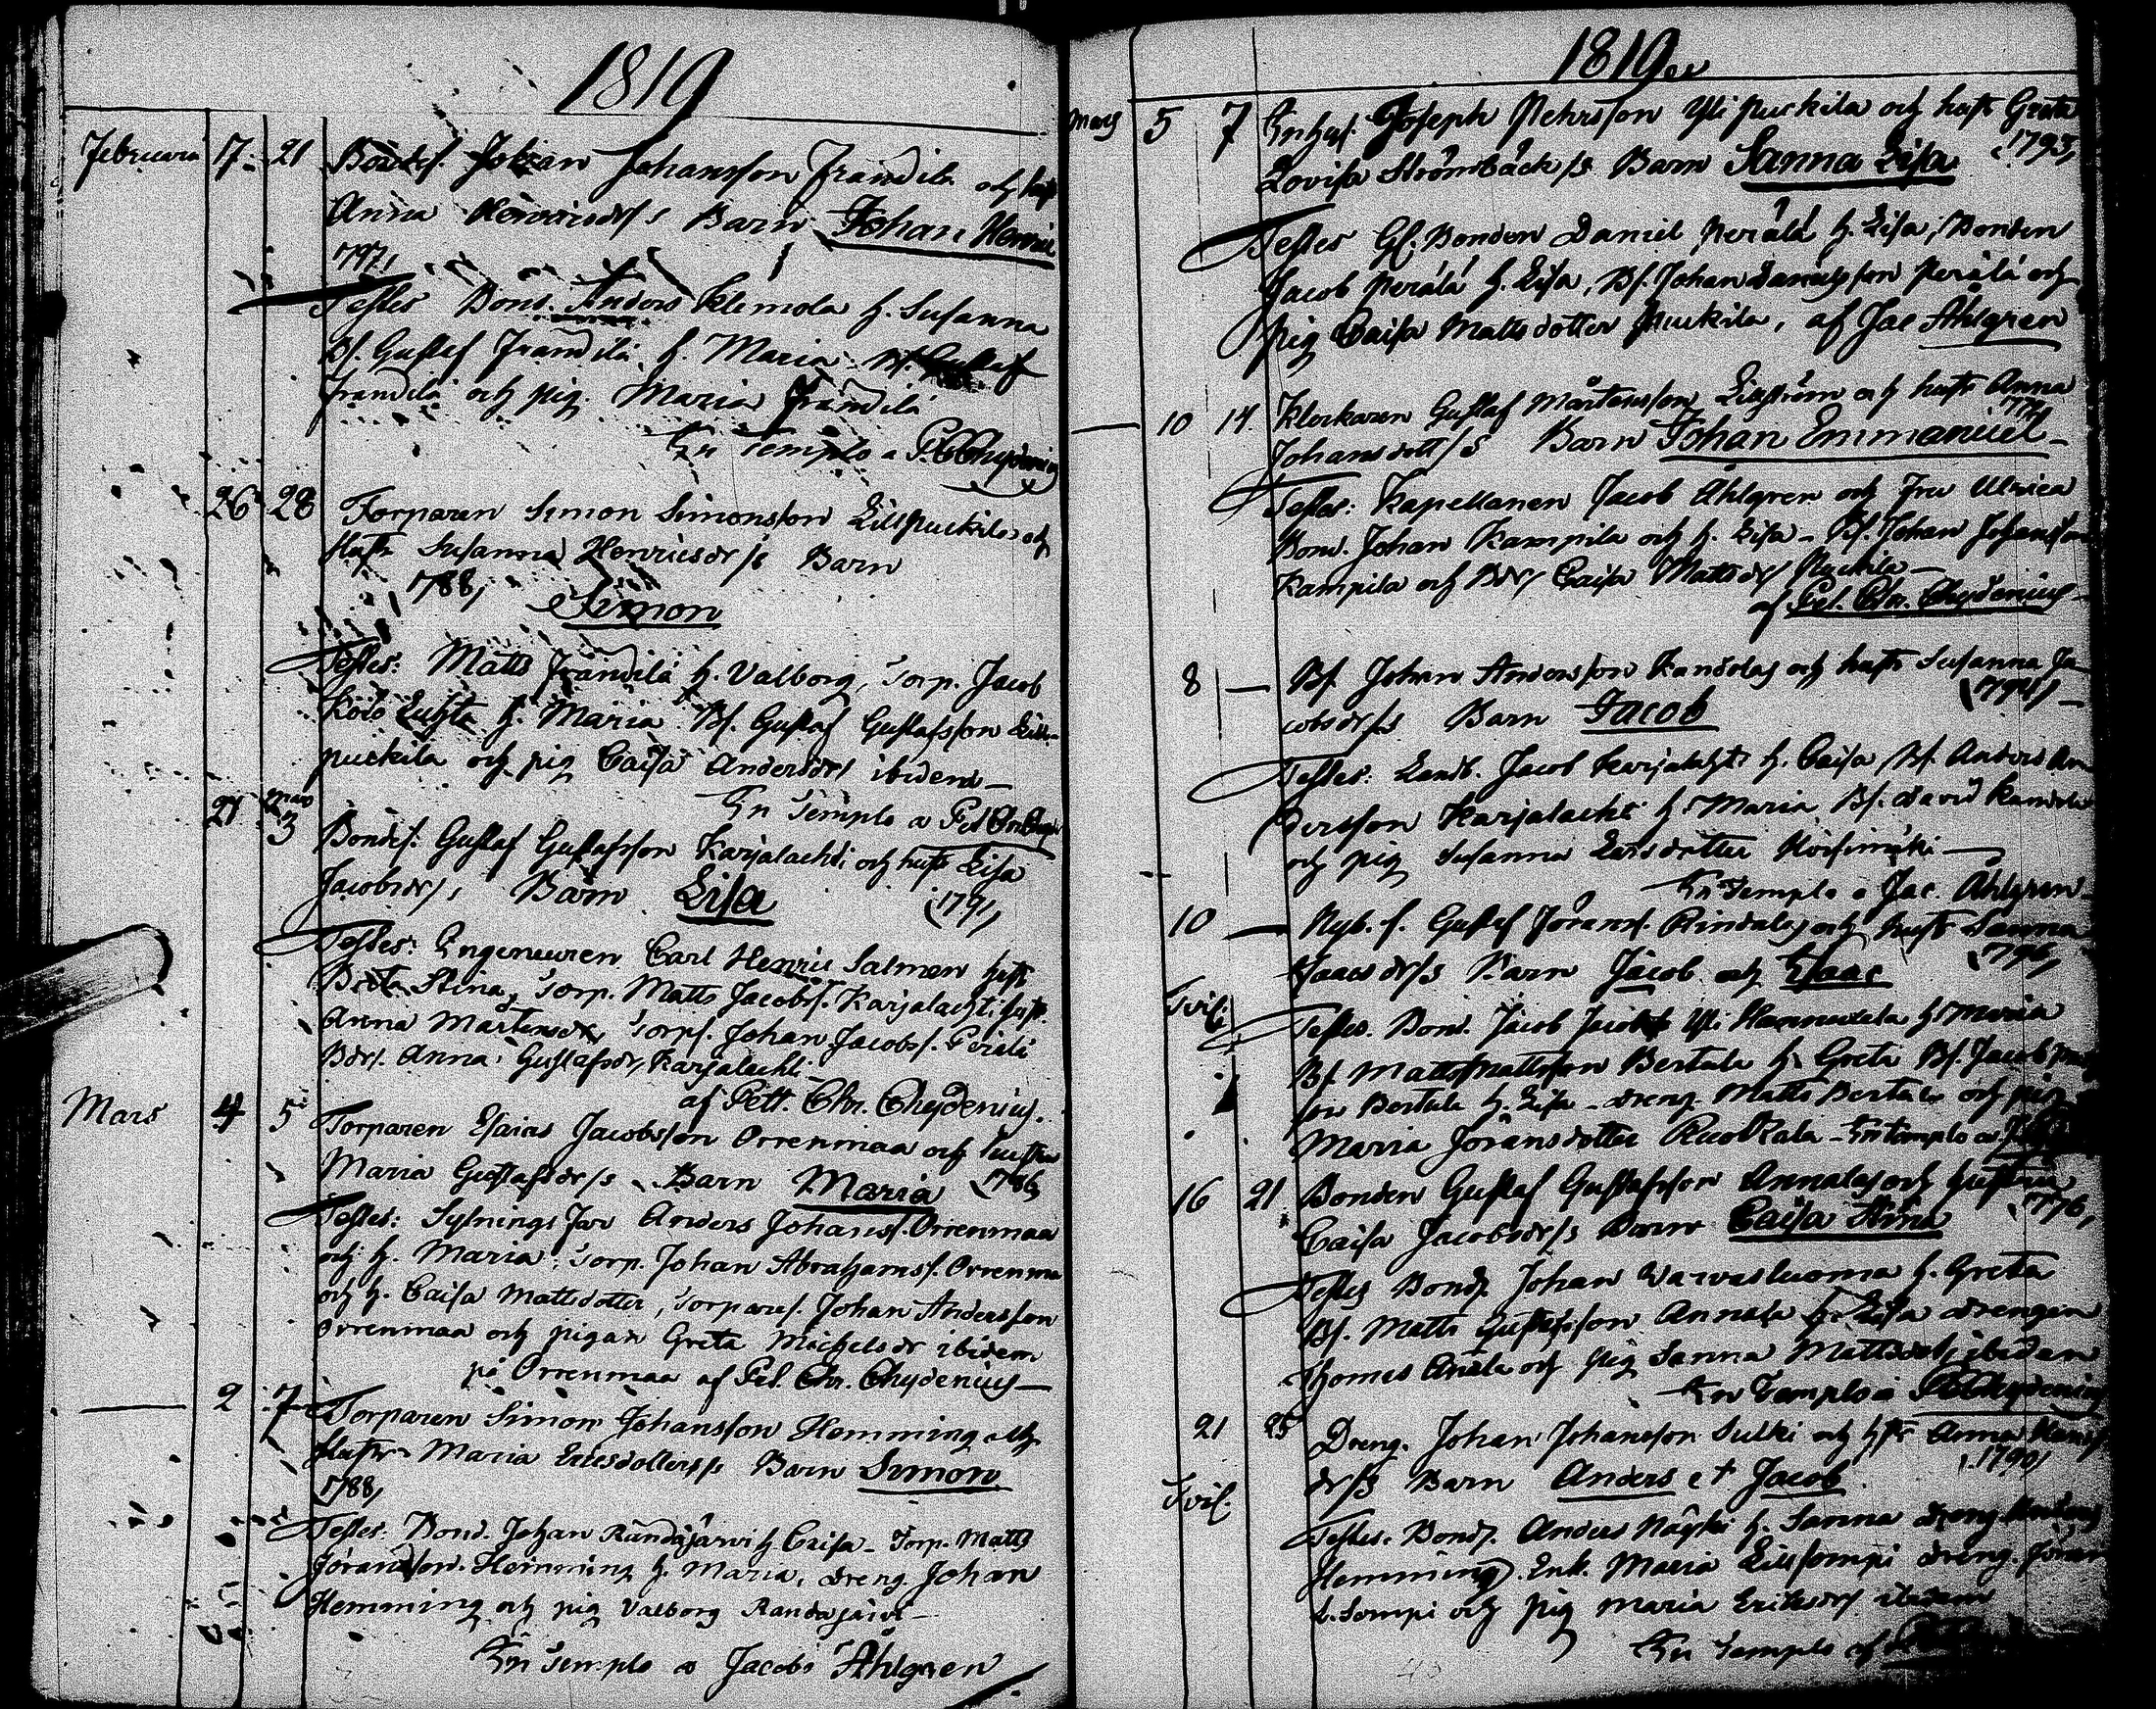 1819
Februari 17. 21 Bondes. Johan Johansson Frändilä och hust
Anna Henricsdr/s Barn Johan Henric
797,
Testes Bond. Anders Klemola h. Susanna
Bs. Gustaf Frändilä h. Maria
Frändilä och pig. Maria Frändilä
In Templo a P. C. Chydenius
26 28 Torparen Simon Simonsson Lillpuckila och
Hustr Susanna Henricsdr/s Barn
788,
Simon
Testes: Matts Frändilä h. Valborg, Torp. Jacob
h. Maria Bs. Gustaf Gustafsson Lill-
puckila och pig Caisa Andersdr ibidem
In Templo a Pet Chr
27 Mars 3 Bondes. Gustaf Gustafsson Karjalachti och hustr Lisa
Jacobsdr/s Barn Lisa (791,
Testes: Ingeneuren Carl Henric Salmen hust
Brita Stina, Torp. Matts Jacobs. Karjalachti hust.
Anna Mårtensdr, Torps. Johan Jacobs. Perälä
Bdr. Anna Gustafsdr, Karjalachti
af Pett. Chr. Chydenius.
Mars 4 5 Torparen Esaias Jacobsson Orrenmaa och hustru
Maria Gustafsdr/s Barn Maria 786,
Testes: Sytnings Jar Anders Johans. Orrenmaa
och h. Maria, Torp. Johan Abrahams. Orrenma
och h. Caisa Mattsdotter, Torpares. Johan Andersson
Orrenmaa och pigan Greta Michelsdr ibidem
på Orrenmaa af Pet. Chr. Chydenius
2 7 Torparen Simon Johansson Hemming och
Hustr Maria Ericsdotters/s Barn Simon
788,
Testes. Bond. Johan Randajärvi h. Caisa - Torp. Matts
Jöransson Hemming h. Maria, dreng. Johan
Hemming och pig Valborg Randajärvi
In Templo a Jacobo Åhlgren
1819
Mars 5 7 Inhys. Joseph Pehrsson Yli puckila och hust Greta
Lovisa Strömbäck/s Barn Sanna Lisa 1793,
Testes Gl. Bonden Daniel Perälä h. Lisa, Bonden
Jacob Perälä h. Lisa, Bs. Johan Danielsson Perälä och
pig Caisa Mattsdotter Puckila, af Jac Åhlgren
10 14. Klockaren Gustaf Mårtensson Liljström och hustr Anna
Johansdott/s Barn Johan Emmanuel
Testes: Kapellanen Jacob Åhlgren och Fru Ulrica
Bond. Johan Kampila och h. Lisa - Bs. Johan Johansson
Kampila och Bdr, Caisa Mattsdr Puckila
af Pet. Chr. Chydenius
8 — Bs. Johan Andersson Kandola, och hustr Susanna Ja-
cobsdr/s Barn Jacob (794)
Testes: Landb. Jacob Karjalahti h. Caisa, Bs. Anders An-
dersson Karjalachti h. Maria, Bs. David Kandola
och pig Susanna Larsdotter
In Templo a Jac. Åhlgren
10 — Nyb. s. Gustaf Jörans. Rindala, och hustr Sanna
Isaacsdr/s Barn Jacob och Isaac 796,
Tvil: Testes. Bond. Jacob Yli Hannuxela h. Maria
Bs. Matts Mattsson Bertula h. Greta Bs. Jacob
son Bertula h. Lisa - dreng Matts Bertula och pig
Maria Jöransdotter - In templo a
16 21 Bonden Gustaf Gustafsson Annala, och hustru
Caisa Jacobsdr/s Barn Caisa Stina 776,
Testes Bond. Johan Warvasluoma h. Greta
Bs. Matts Gustafsson Annala h. Lisa drengen
Thomas Anala och pig Sanna Mattsdotr ibidem
In Templo a P C Chydenius
21 25 Dreng. Johan Johansson Sulki och hstr Anna
dr/s Barn Anders et Jacob 1790,
Tvil. Testes. Bond. Anders h. Sanna dreng
Hemming. Enk. Maria Lillsompi dreng. Jöran
L. Sompi och pig Maria Eriksdr ibidem
In Templo af